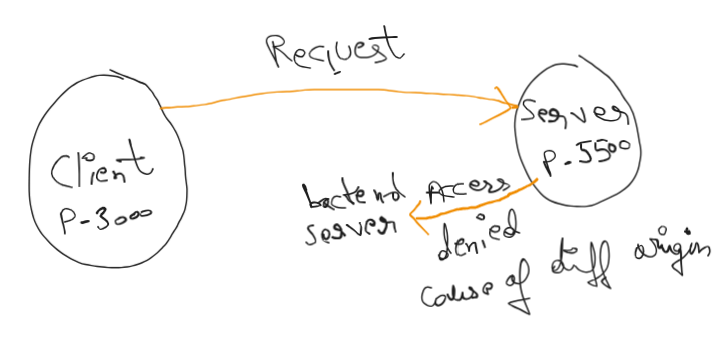 Request
Client
P-3000
Server
P-5500
backend
server
Access
denied
cause of diff origin